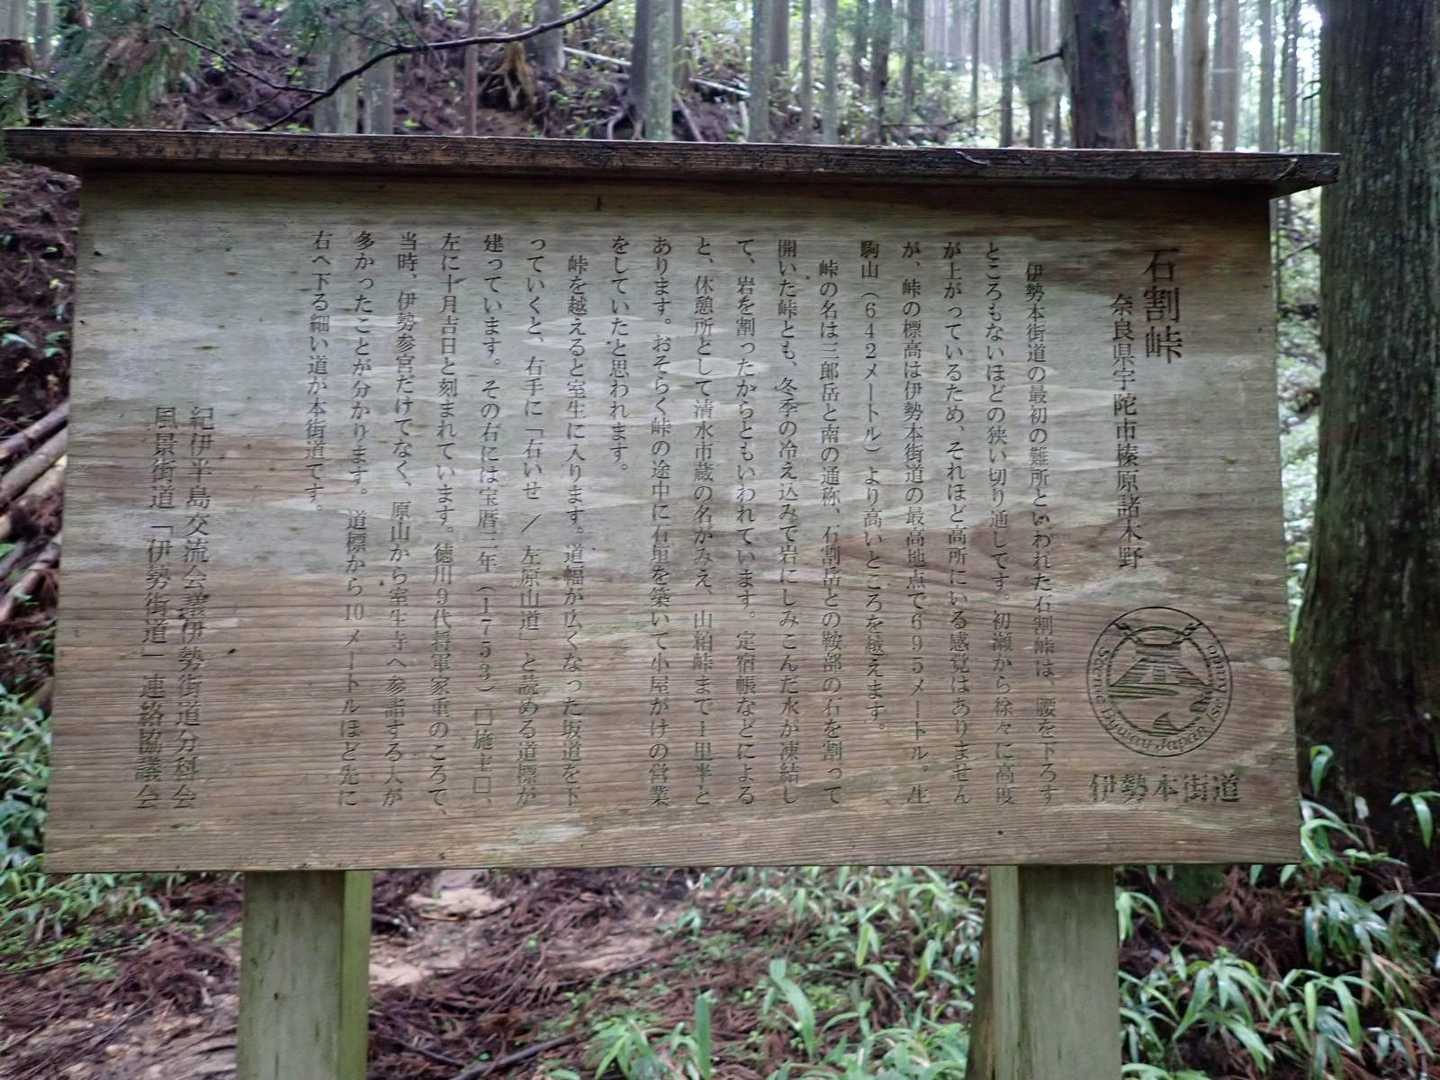 石割峠
奈良県宇陀市榛原諸木野
伊勢本街道の最初の難所といわれた石割峠は、腰を下ろす
ところもないほどの狭い切り通しです。初瀬から徐々に高度
が上がっているため、それほど高所にいる感覚はありません
が、峠の標高は伊勢本街道の最高地点で695メートル。生
駒山（642メートル）より高いところを越えます。
峠の名は三郎岳と南の通称、石割岳との鞍部の石を割って
開いた峠とも、冬季の冷え込みで岩にしみこんだ水が凍結し
て、岩を割ったからともいわれています。定宿帳などによる
と、休憩所として清水市蔵の名がみえ、山粕峠まで1里半と
あります。おそらく峠の途中に石垣を築いて小屋がけの営業
をしていたと思われます。
峠を越えると室生に入ります。道幅が広くなった坂道を下
っていくと、右手に「右いせ／左原山道」と読める道標が
建っています。その右には宝暦三年（1753）□施主□、
左に十月吉日と刻まれています。徳川9代将軍家重のころで、
当時、伊勢参宮だけでなく、原山から室生寺へ参詣する人が
多かったことが分かります。道標から10メートルほど先に
右へ下る細い道が本街道です。
紀伊半島交流会議伊勢街道分科会
風景街道「伊勢街道」連絡協議会
Scenic Byway Japan
伊勢本街道